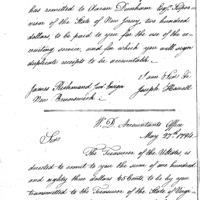 has remitted to Aaron Dunham Esqr. Super-
visor of the State of New Jersey, two hundred
dollars, to be paid to you for the use of the re-
cruiting service, and for which you will sign
duplicate receipts to be accountable.
I am Sir &c
James Richmond Joseph Howell
New Brunswick
W.D. Accountants Office
May 27th 1794.
Sir
The Treasurer of the UStates is
directed to remit to you the sum of one hundred
and eighty three dollars 45 Cents to be by you
transmitted to the Treasurer of the State of Virgi-